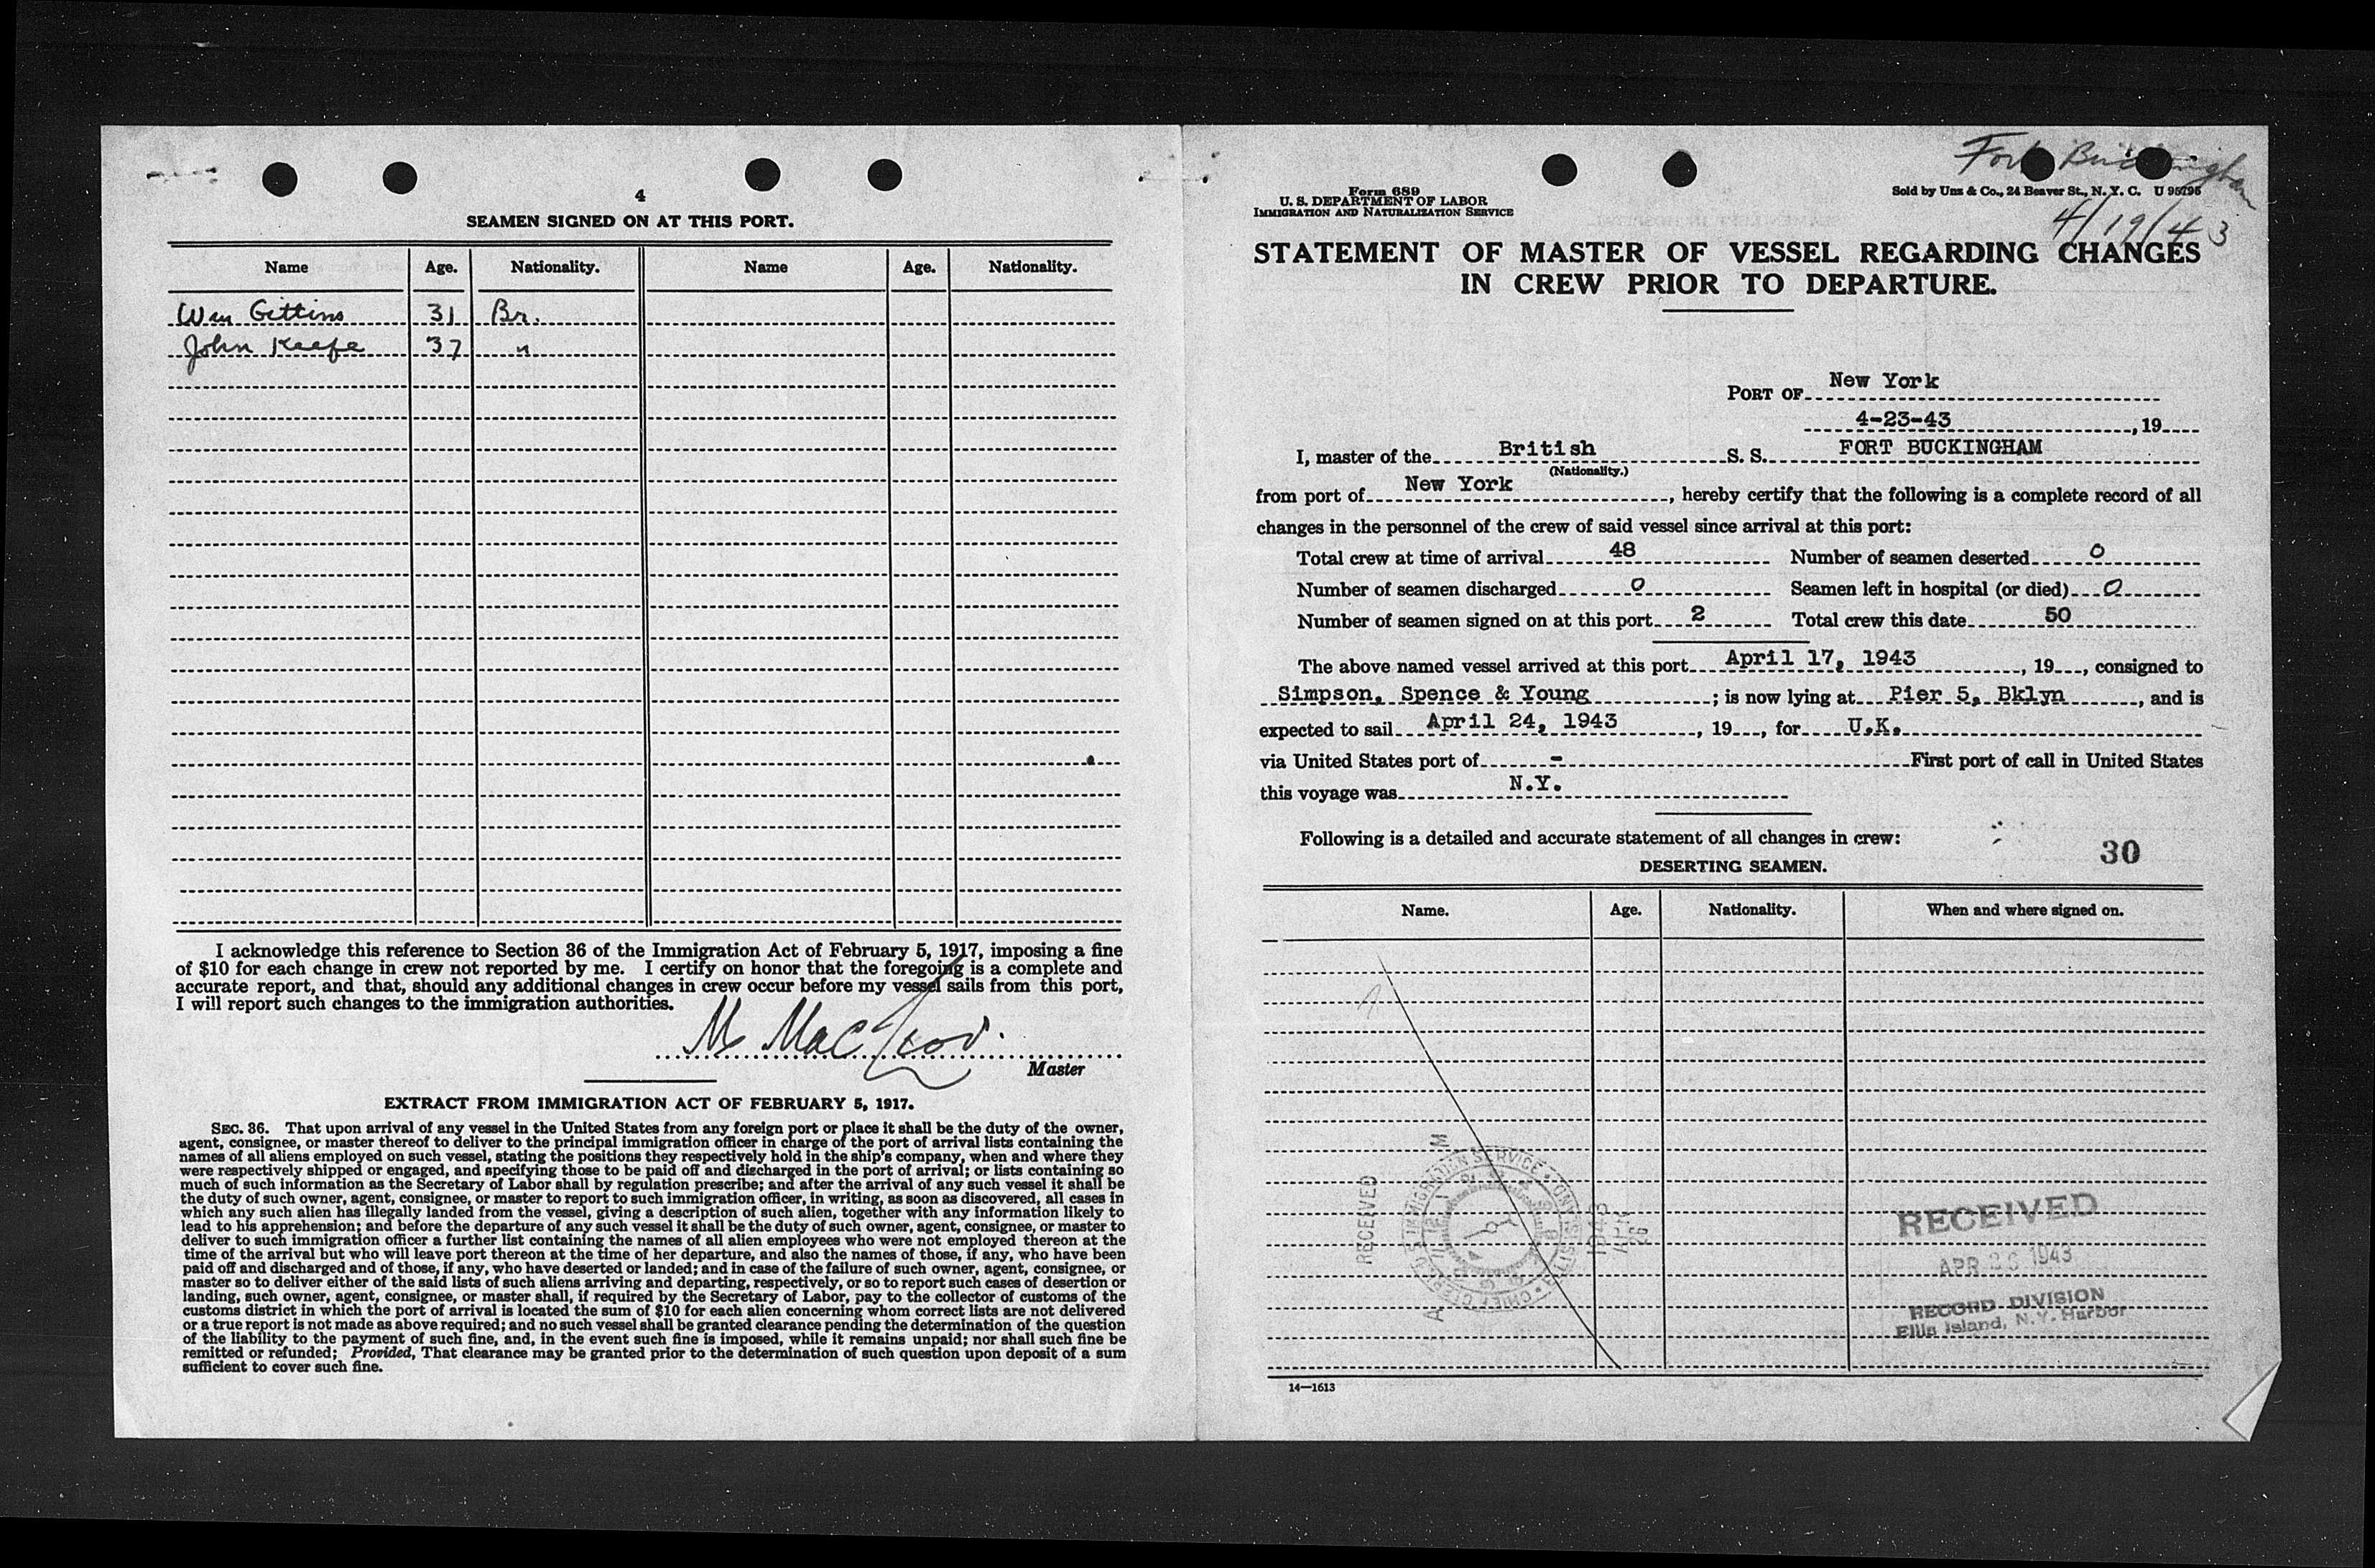 4
SEAMEN SIGNED ON AT THIS PORT.
Name Age. Nationality. Name Age. Nationality.
Wm Gittins 31 Br.
John Keefe 37 "
I acknowledge this reference to Section 36 of the Immigration Act of February 5, 1917, imposing a fine
of $10 for each change in crew not reported by me. I certify on honor that the foregoing is a complete and
accurate report, and that, should any additional changes in crew occur before my vessel sails from this port,
I will report such changes to the immigration authorities.
M MacLeod.
Master
EXTRACT FROM IMMIGRATION ACT OF FEBRUARY 5, 1917.
SEC. 36. That upon arrival of any vessel in the United States from any foreign port or place it shall be the duty of the owner,
agent, consignee, or master thereof to deliver to the principal immigration officer in charge of the port of arrival lists containing the
names of all aliens employed on such vessel, stating the positions they respectively hold in the ship's company, when and where they
were respectively shipped or engaged, and specifying those to be paid off and discharged in the port of arrival; or lists containing so
much of such information as the Secretary of Labor shall by regulation prescribe; and after the arrival of any such vessel it shall be
the duty of such owner, agent, consignee, or master to report to such immigration officer, in writing, as soon as discovered, all cases in
which any such alien has illegally landed from the vessel, giving a description of such alien, together with any information likely to
lead to his apprehension; and before the departure of any such vessel it shall be the duty of such owner, agent, consignee, or master to
deliver to such immigration officer a further list containing the names of all alien employees who were not employed thereon at the
time of the arrival but who will leave port thereon at the time of her departure, and also the names of those, if any, who have been
paid off and discharged and of those, if any, who have deserted or landed; and in case of the failure of such owner, agent, consignee, or
master so to deliver either of the said lists of such aliens arriving and departing, respectively, or so to report such cases of desertion or
landing, such owner, agent, consignee, or master shall, if required by the Secretary of Labor, pay to the collector of customs of the
customs district in which the port of arrival is located the sum of $10 for each alien concerning whom correct lists are not delivered
or a true report is not made as above required; and no such vessel shall be granted clearance pending the determination of the question
of the liability to the payment of such fine, and, in the event such fine is imposed, while it remains unpaid; nor shall such fine be
remitted or refunded; Provided, That clearance may be granted prior to the determination of such question upon deposit of a sum
sufficient to cover such fine.
Fort Buckingham
Form 689
U. S. DEPARTMENT OF LABOR
IMMIGRATION AND NATURALIZATION SERVICE
Sold by Unz & Co., 24 Beaver St., N. Y. C. U 95795
4/19/43
STATEMENT OF MASTER OF VESSEL REGARDING CHANGES
IN CREW PRIOR TO DEPARTURE.
PORT OF New York
4-23-43, 19
I, master of the British S. S. FORT BUCKINGHAM
(Nationality.)
from port of New York, hereby certify that the following is a complete record of all
changes in the personnel of the crew of said vessel since arrival at this port:
Total crew at time of arrival 48 Number of seamen deserted 0
Number of seamen discharged 0 Seamen left in hospital (or died) 0
Number of seamen signed on at this port 2 Total crew this date 50
The above named vessel arrived at this port April 17, 1943, 19, consigned to
Simpson, Spence & Young; is now lying at Pier 5, Bklyn, and is
expected to sail April 24, 1943, 19, for U.K.
via United States port of - First port of call in United States
this voyage was N.Y.
Following is a detailed and accurate statement of all changes in crew:
30
DESERTING SEAMEN.
Name. Age. Nationality. When and where signed on.
RECEIVED
1943
RECEIVED
APR 26 1943
RECORD DIVISION
Ellis Island, N.Y. Harbor
14—1613